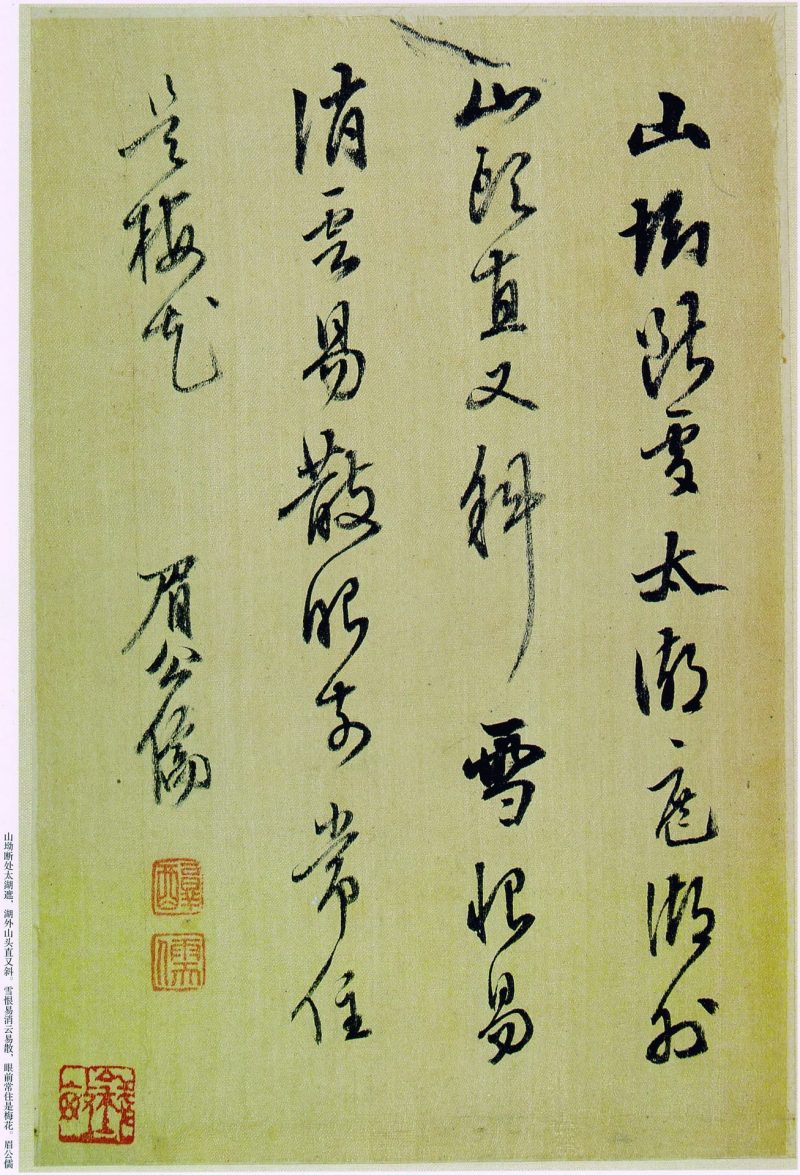 山坳斷處太湖遮湖外
山頭直又斜雪恨易
消雲易散眼前常住
是梅花 眉公儒
醇儒
山坳断处太湖遮，湖外山头直又斜。雪恨易消云易散，眼前常住是梅花。眉公儒